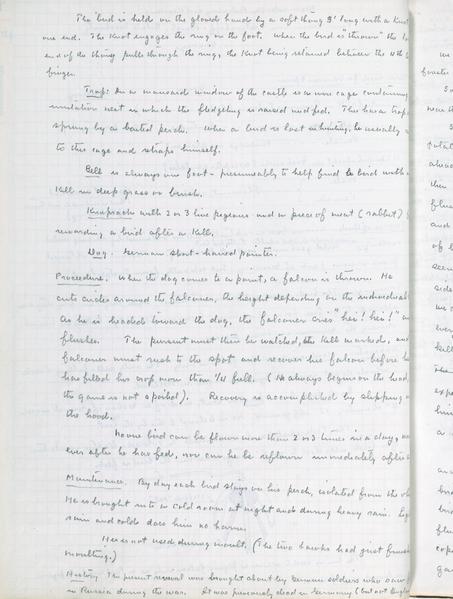 The bird is held on the gloved hand by a soft thong 8" long with a knot
one end. The knot engages the ring on the foot. When the bird is "thrown" the
end of the thong pulls through the ring, the knot being retained between the 4th &
finger.
Trap: In a mansard window of the castle is a wire cage containing
simulation nest in which the fledgeling is raised and fed. This has a trap
sprung by a baited perch. When a bird is lost in hunting, he usually
to this cage and traps himself.
Bell is always one foot - presumeably to help find bird with
kill in deep grass or brush.
Knapsack with 2 or 3 live pigeons and a piece of meat (rabbit)
rewarding a bird after a kill.
Dog. German short-haired pointer.
Procedure. When the dog comes to a point, a falcon is thrown. He
cuts circles around the falconer, the height depending on the individual
As he is headed toward the dog, the falconer cries "hei! hei!"
flushes. The pursuit must then be watched, the kill marked, and
falconer must rush to the spot and recover his falcon before he
has filled his crop more than 1/4 full. (He always begins on the head,
the game is not spoiled). Recovery is accomplished by slipping
the hood.
None bird can be flown more than 2 or 3 times in a day,
ever after he has fed, nor can he be reflown immediately after
Maintenance. By day each bird stays on his perch, isolated from the
He is brought into a cold room at night and during heavy rain.
rain and cold does him no harm.
He is not used during moult. (The two hawks had just finished
moulting.)
History. The present revival was brought about by German soldiers who saw
in Russia during the war. It was previously dead in Germany (but not